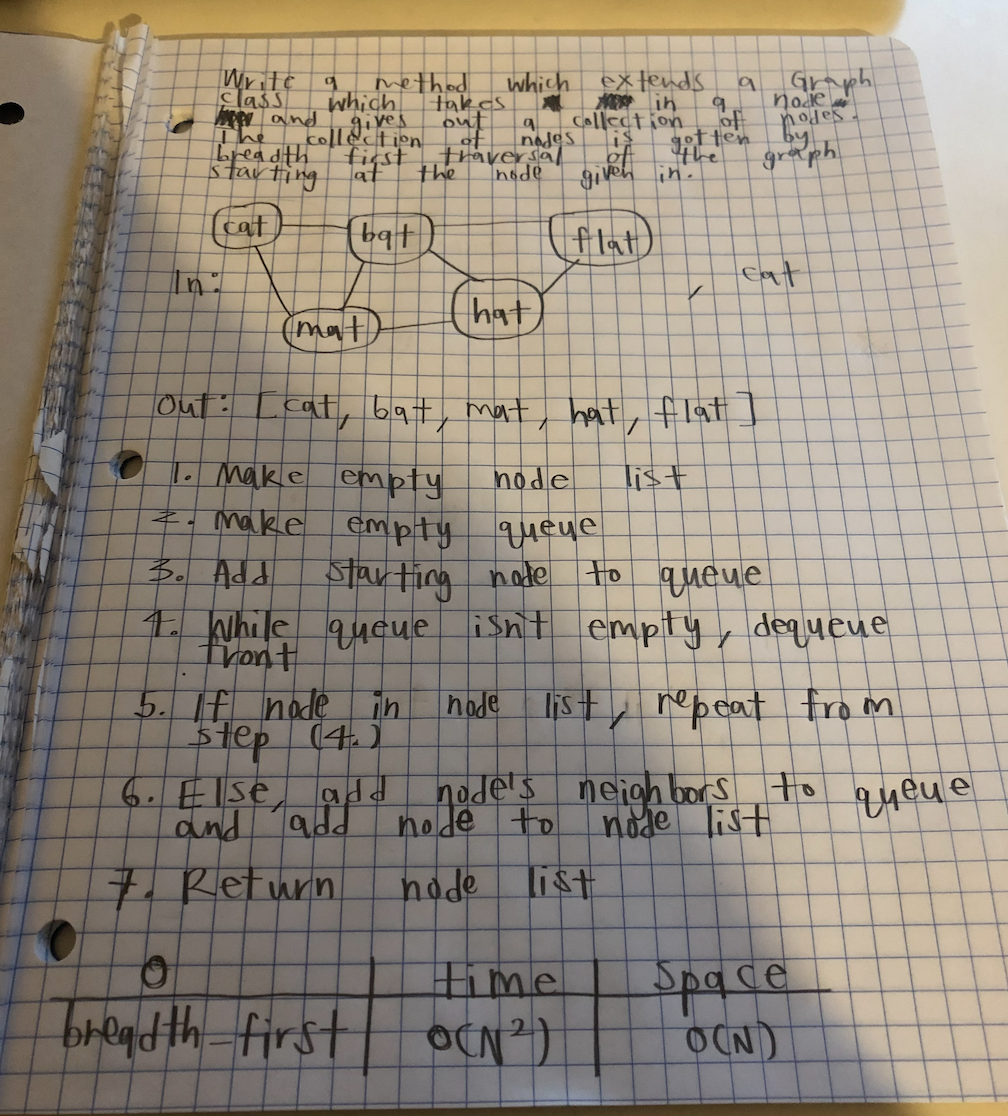 Write a method which extends a Graph
class which takes in a node
and gives out a collection of nodes.
The collection of nodes is gotten by
breadth first traversal of the graph
starting at the node given in.
cat bat flat
In: , cat
mat hat
Out: [cat, bat, mat, hat, flat]
1. Make empty node list
2. Make empty queue
3. Add starting node to queue
4. While queue isn't empty, dequeue
front
5. If node in node list, repeat from
step (4.)
6. Else, add node's neighbors to queue
and add node to node list
7. Return node list
O time space
breadth-first O(N²) O(N)